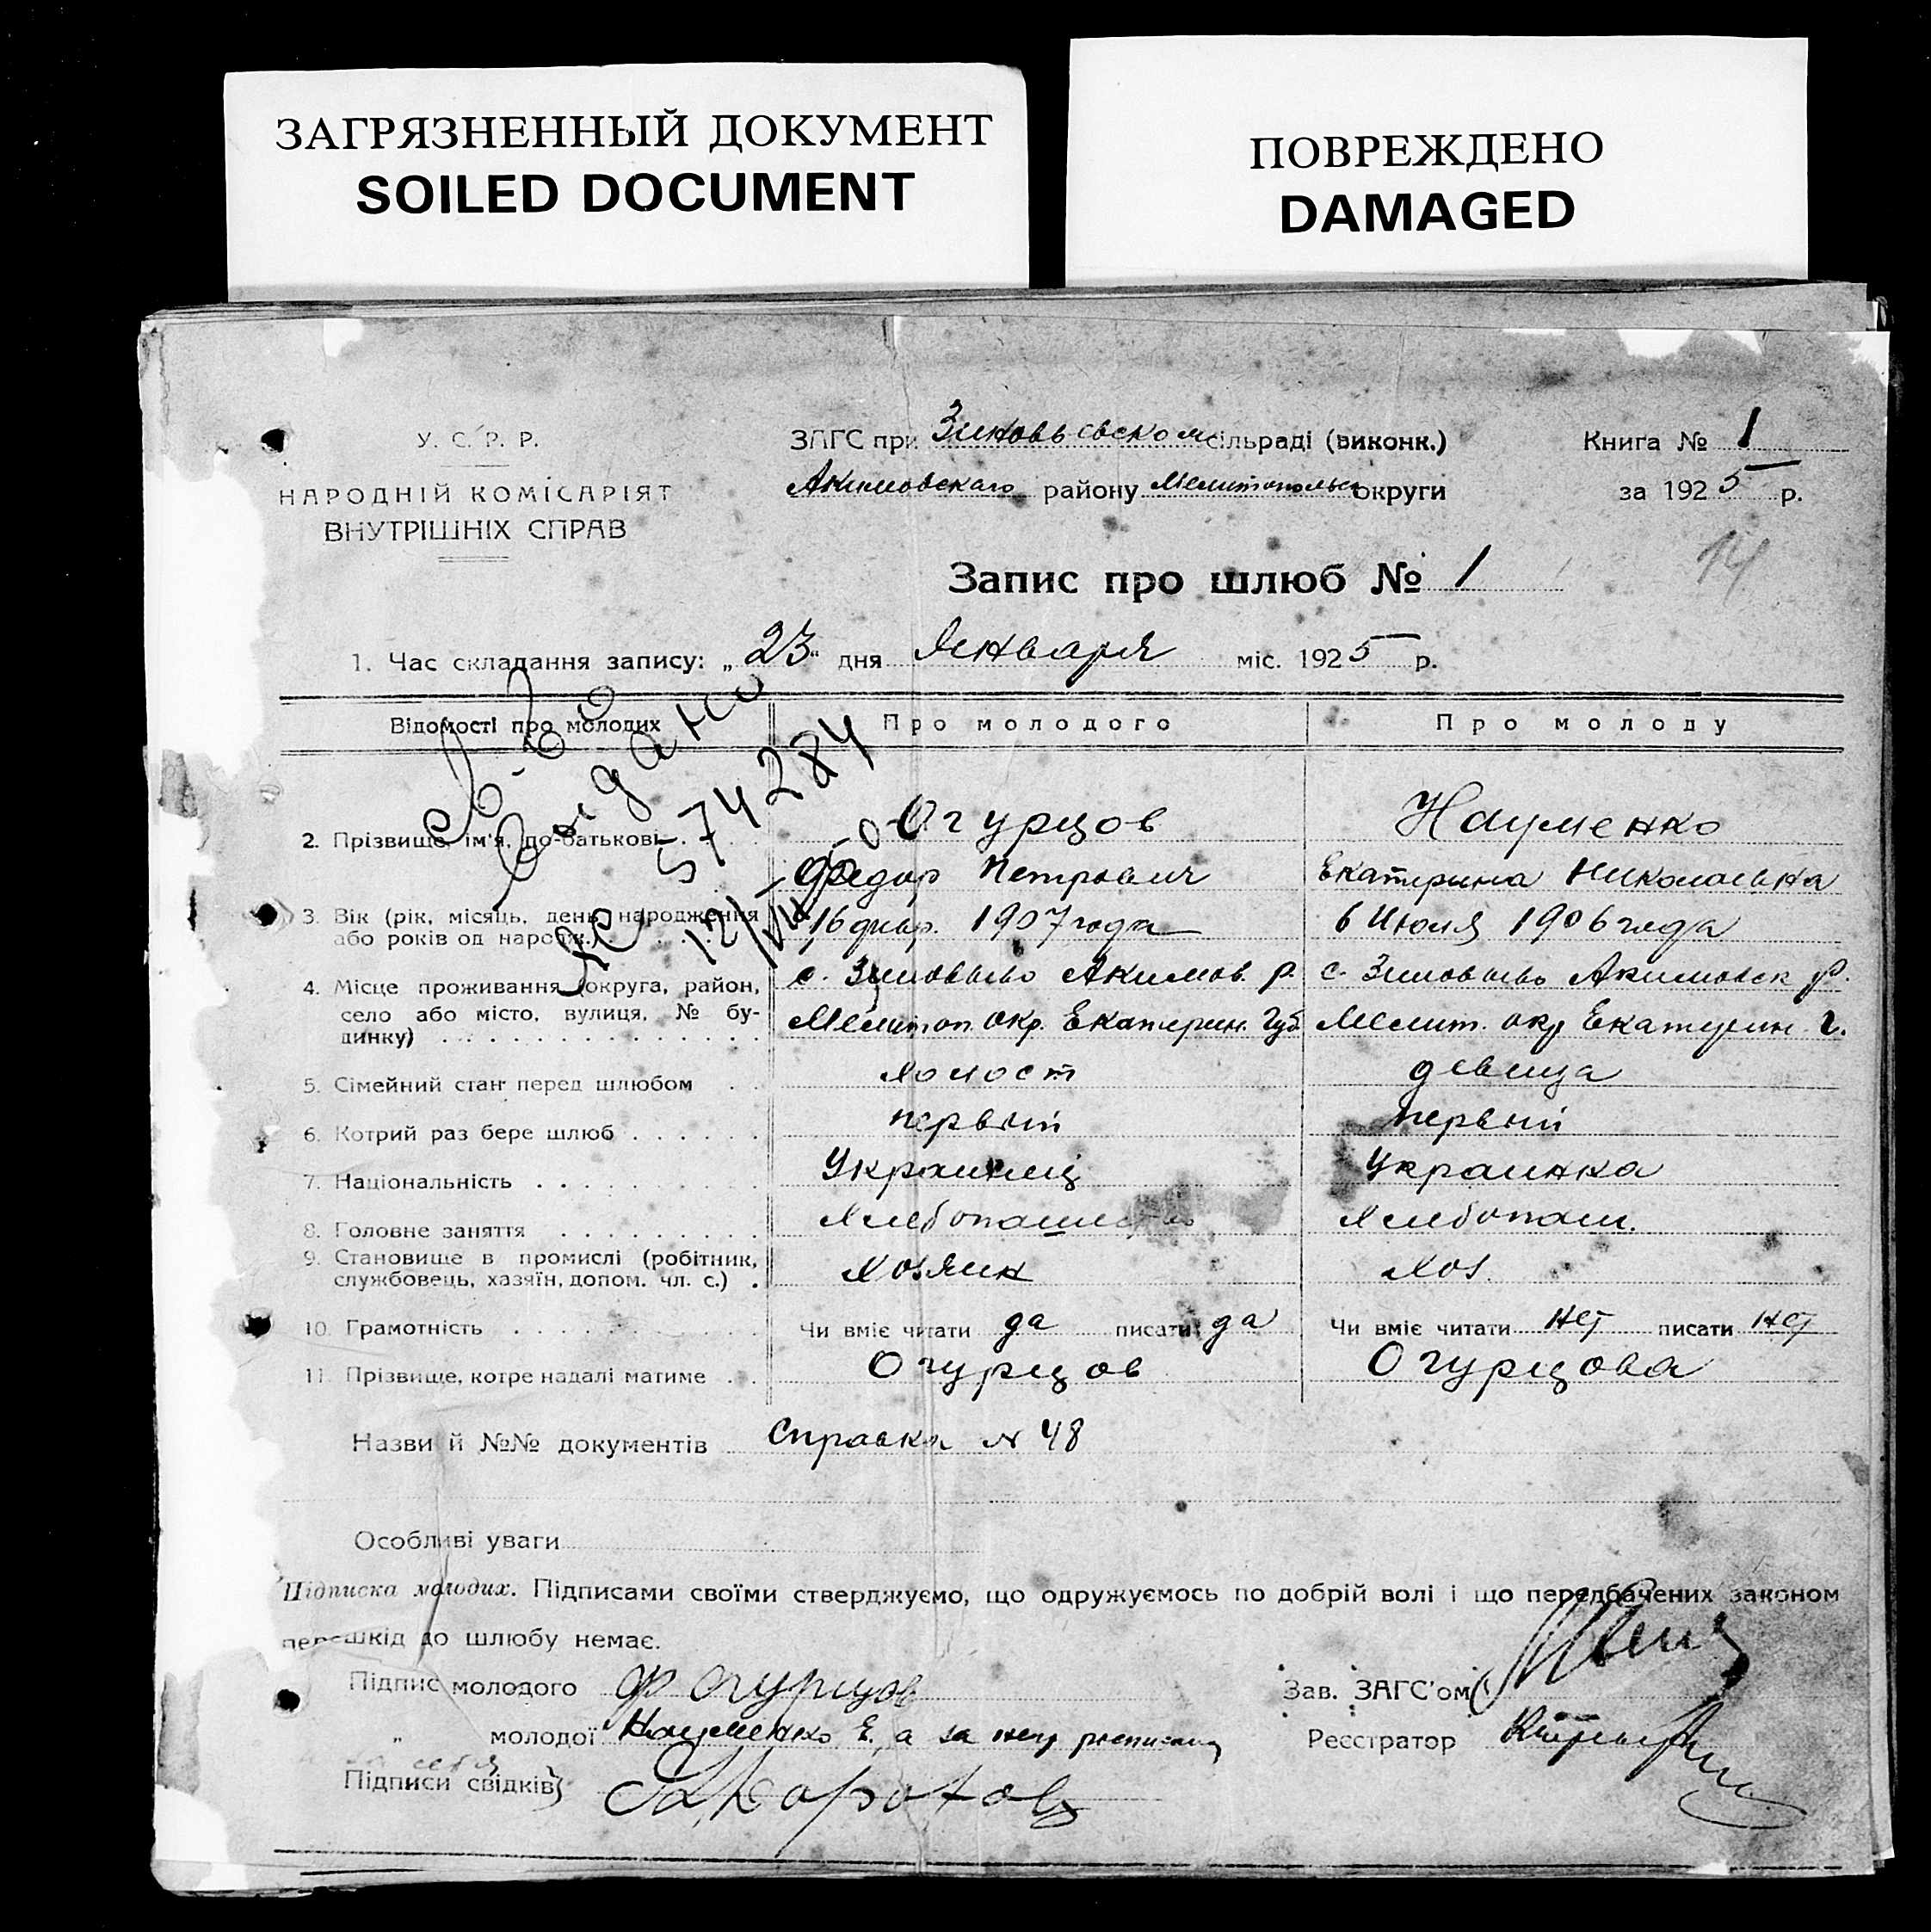 ЗАГРЯЗНЕННЫЙ ДОКУМЕНТ
SOILED DOCUMENT
ПОВРЕЖДЕНО
DAMAGED
У. С. Р. Р.
НАРОДНІЙ КОМІСАРІЯТ
ВНУТРІШНІХ СПРАВ
ЗАГС при Зиновьевском сільраді (виконк.)
Акимовскаго району Мелитопольск округи
Книга № 1
за 1925 р.
14
Запис про шлюб № 1
1. Час складання запису: „23“ дня Января міс. 1925 р.
Відомості про молодих
Про молодого
Про молоду
св-во
выдано
574284
2. Прізвище, ім'я, по-батькові
Огурцов
Федор Петрович
Науменко
Екатерина Николаевна
3. Вік (рік, місяць, день народження
або років од народж.)
16 1907 года
6 Июля 1906 года
4. Місце проживання (округа, район,
село або місто, вулиця, № бу-
динку)
с. Зиновьево Акимов. р.
Мелитоп. окр. Екатерин. Губ.
с. Зиновьево Акимовск р.
Мелит. окр Екатерин. г.
5. Сімейний стан перед шлюбом
холост
девица
6. Котрий раз бере шлюб
первый
первый
7. Національність
Украинец
Украинка
8. Головне заняття
Хлебопашество
Хлебопаш.
9. Становище в промислі (робітник,
службовець, хазяїн, допом. чл. с.)
Хозяин
Хоз.
10. Грамотність
Чи вміє читати да писати да
Чи вміє читати нет писати нет
11. Прізвище, котре надалі матиме
Огурцов
Огурцова
Назви й №№ документів Справка № 48
Особливі уваги
Підписка молодих. Підписами своїми стверджуємо, що одружуємось по добрій волі і що передбачених законом
перешкід до шлюбу немає.
Підпис молодого Ф Огурцов
Зав. ЗАГС'ом
„ молодої Науменко Е. а за нею
Реєстратор
Підписи свідків